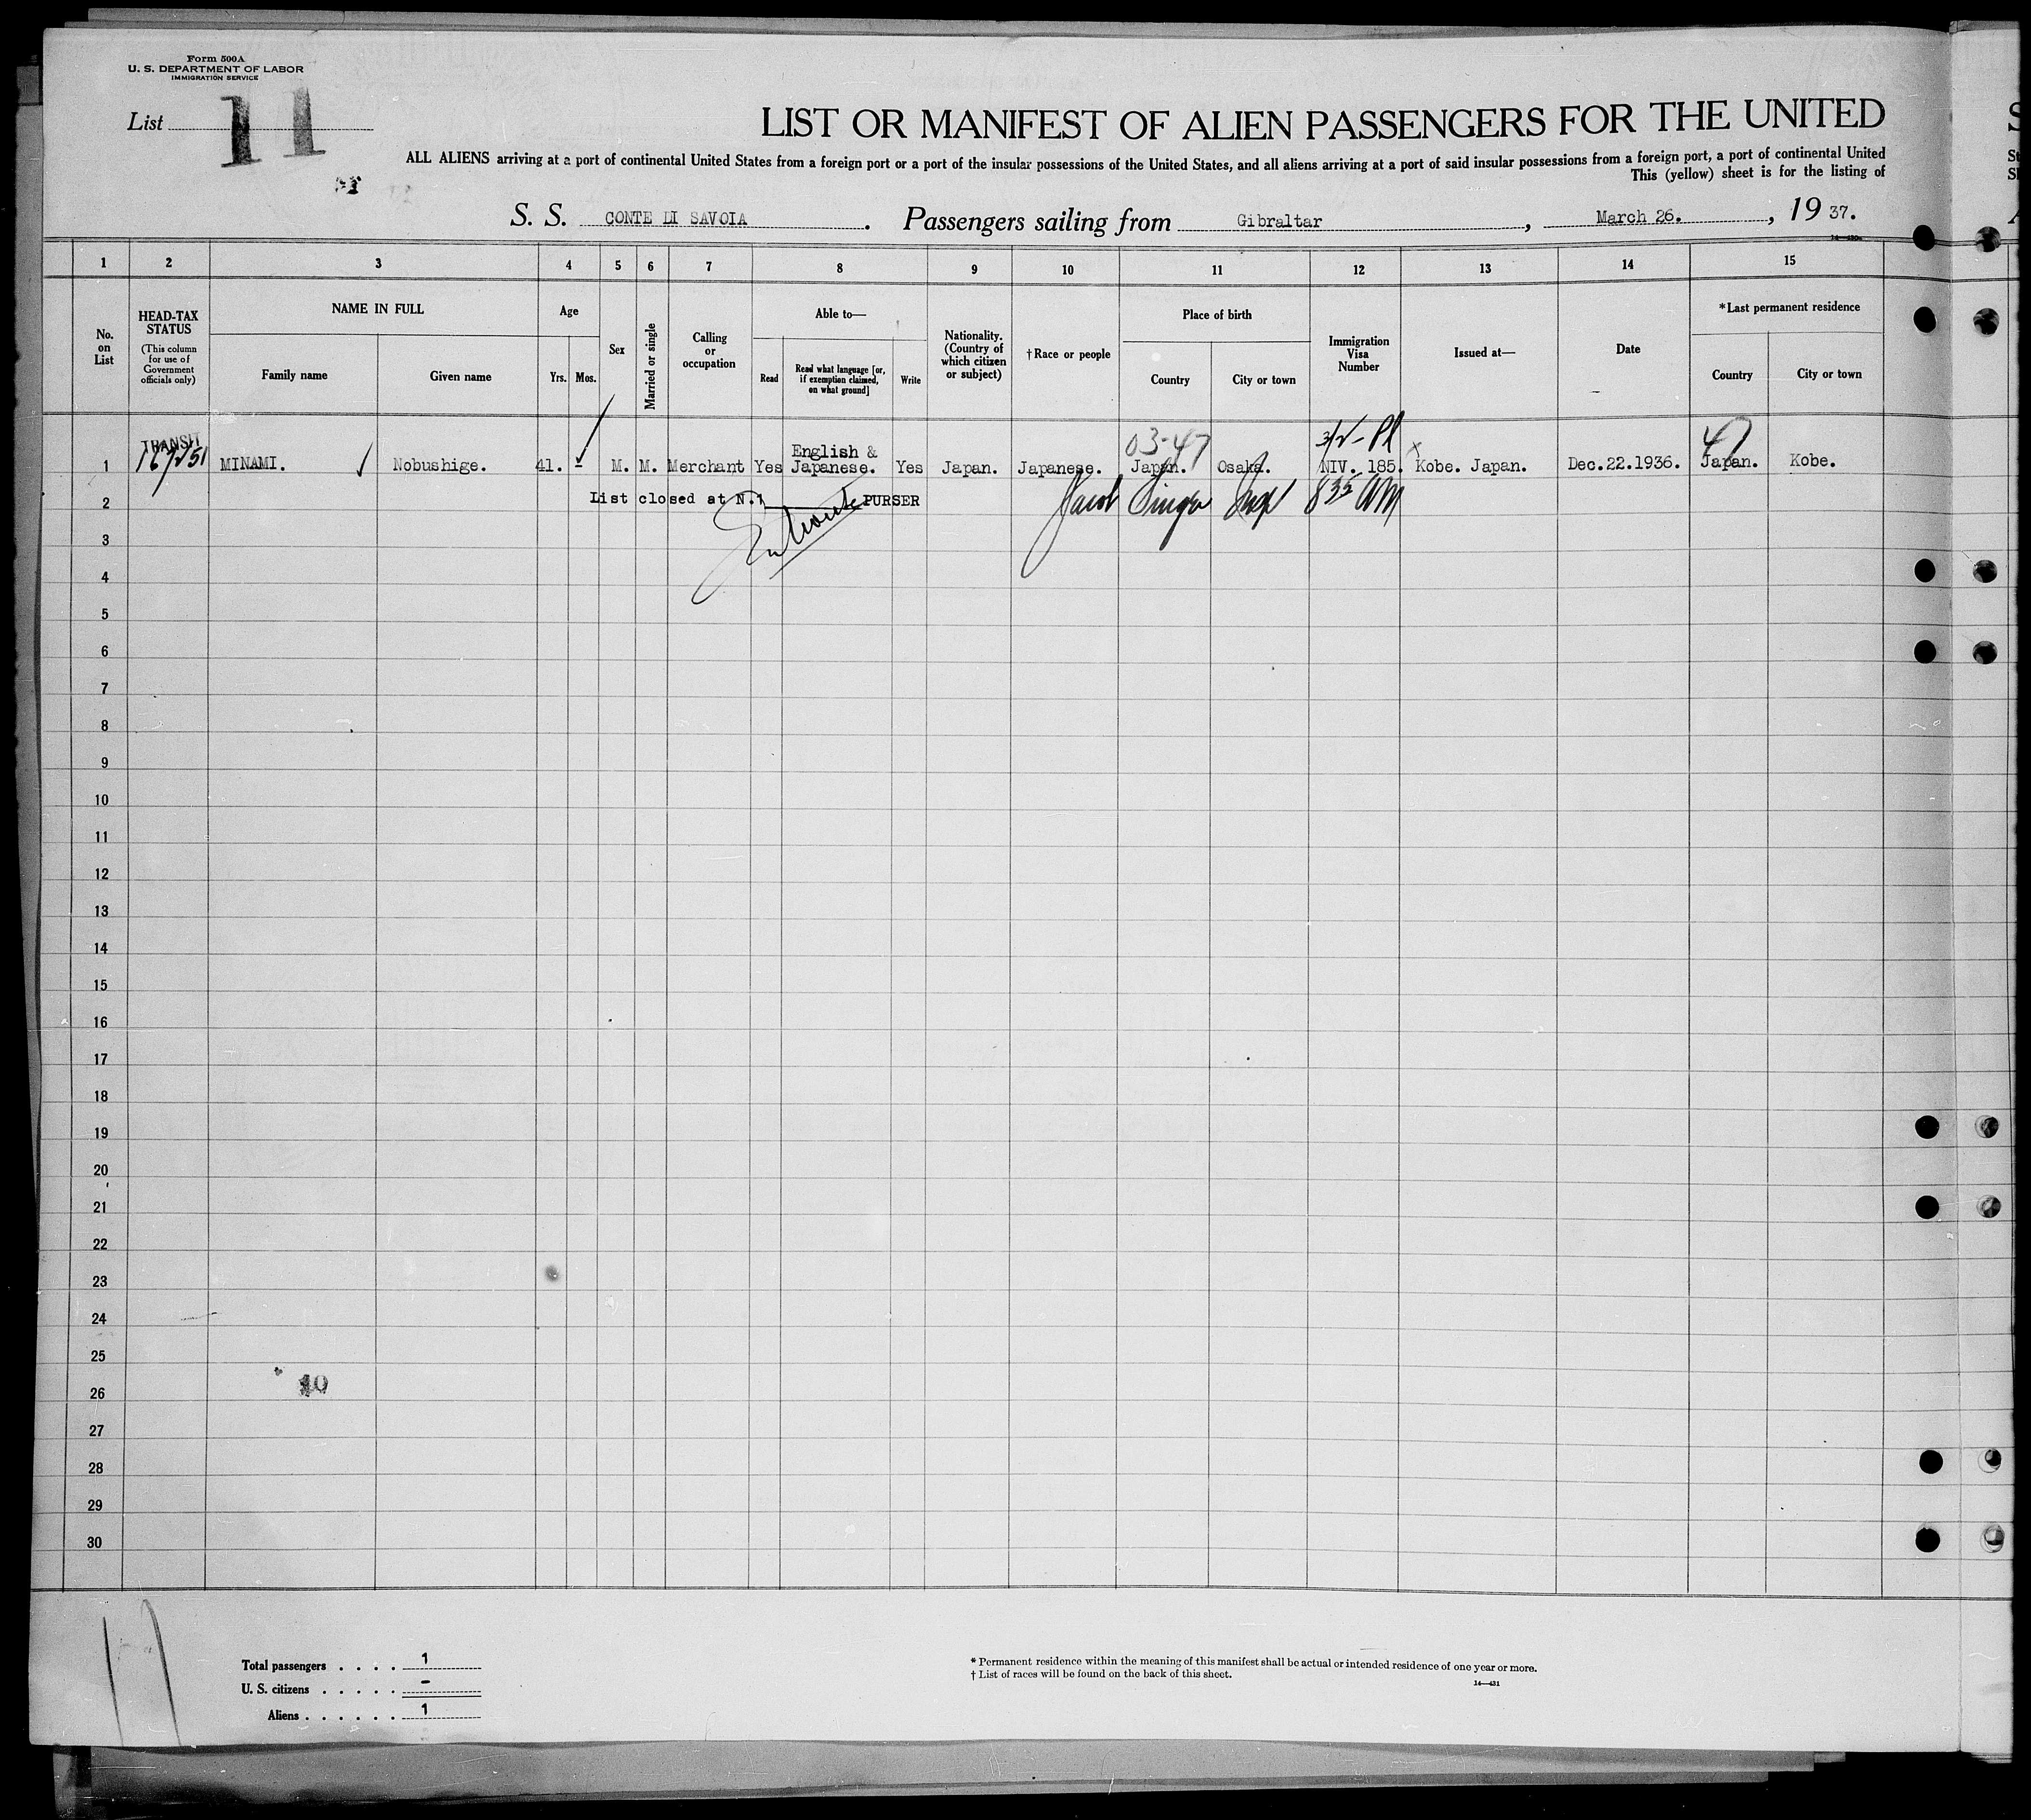 Form 500A
U. S. DEPARTMENT OF LABOR
IMMIGRATION SERVICE
List 11
LIST OR MANIFEST OF ALIEN PASSENGERS FOR THE UNITED
ALL ALIENS arriving at a port of continental United States from a foreign port or a port of the insular possessions of the United States, and all aliens arriving at a port of said insular possessions from a foreign port, a port of continental United
This (yellow) sheet is for the listing of
S. S. CONTE DI SAVOIA. Passengers sailing from Gibraltar, March 26., 19 37.
1 2 3 4 5 6 7 8 9 10 11 12 13 14 15
No. on List
HEAD-TAX STATUS
(This column for use of Government officials only)
NAME IN FULL
Family name
Given name
Age
Yrs. Mos.
Sex
Married or single
Calling or occupation
Able to—
Read
Read what language [or, if exemption claimed, on what ground]
Write
Nationality. (Country of which citizen or subject)
†Race or people
Place of birth
Country
City or town
Immigration Visa Number
Issued at—
Date
*Last permanent residence
Country
City or town
TRANSIT
03-47
English &
1 MINAMI. Nobushige. 41. - M. M. Merchant Yes Japanese. Yes Japan. Japanese. Japan. Osaka. NIV. 185. Kobe. Japan. Dec.22.1936. Japan. Kobe.
2 List closed at N.1 PURSER Jacob Singer Insp 8 35 AM
3
4
5
6
7
8
9
10
11
12
13
14
15
16
17
18
19
20
21
22
23
24
25
26
27
28
29
30
Total passengers . . . . 1
U. S. citizens . . . . . -
Aliens . . . . . . 1
* Permanent residence within the meaning of this manifest shall be actual or intended residence of one year or more.
† List of races will be found on the back of this sheet.
14—431